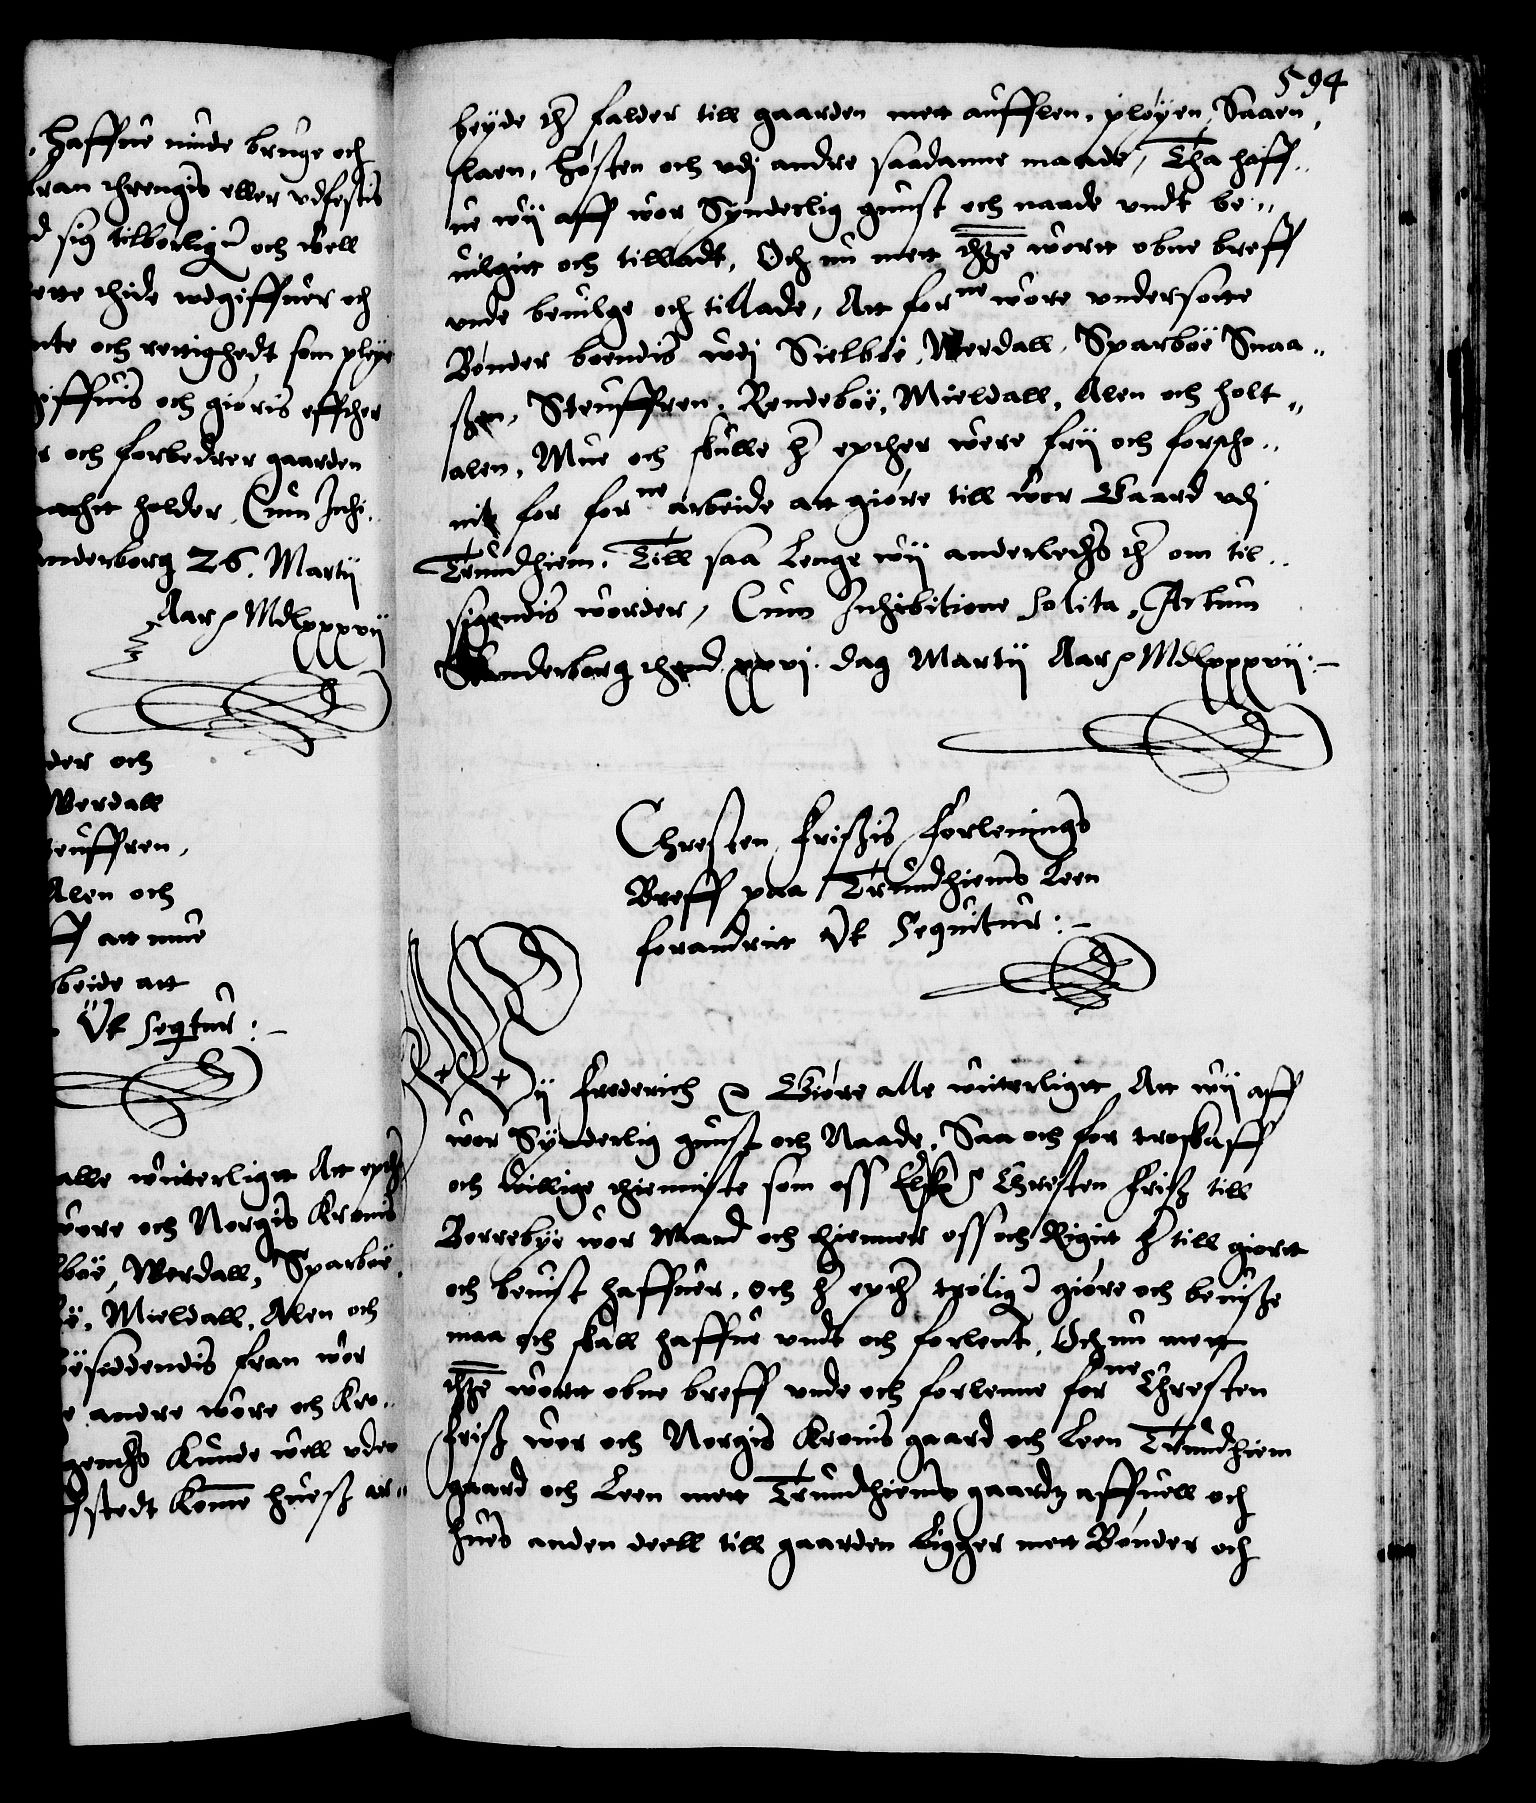 haffue nüde brüge och
fran threngis eller vdfestis
d sig tilbørlig och vell
rette thide vdgiffuer och
nte och rettighedt som pleye
giffuis och giøris effther
r och forbedrer gaarden
macht holder. Cum Inhi..
anderborg 26. Martij
Aar MDlxxxvij
der och
Werdall
teuffren,
Alen och
ff att mue
beide att
Vt seqtur:-
alle witterligtt Att epth
wore och Norgis Kronis
lboe, Werdall, Sparboe
ø, Mieldall, Alen och
øesiddendis fran wor
e andre wore och Kro..
gendts Kunde well vden
ffstedt Komme hues ar..
594
beyde ther falder till gaarden mett aufflen, pløyen, Saaen,
slaen, høsten och vdj andre saadanne maade, Tha haff..
ue wij aff wor Synderlig gunst och naade vndt be..
uilgitt och tilladt, Och nu mett thze wortt obne breff
vnde beuilge och tillade, Att forne wore vndersotte
Bønder boendis wdj Sielboe, Werdall, Sparboe Snaa..
ßen, Steuffren, Rendeboe, Mieldall, Alen och holt..
alen, Mue och skulle her epther were frij och forscho..
nit for forne arbeide att giøre till wor Gaard vdj
Trundhiem, Till saa Lenge wij anderledts ther om til..
sigendis worder, Cum Inhibitione solita, Actum
Skanderborg thend xxvj. dag Martij Aar MDlxxxvij:-
Chresten Frißis Forlenings
Breff paa Trundhiems Leen
forandritt Vt Sequitur:-
Wij Frederich Giøre alle witterligtt Att wij aff
wor Synderlig gunst och Naade, Saa och for troskaff
och Villige thienniste som oss Elske Chresten Friß till
Borrebye wor Mand och thienner oss och Rigitt her till giortt
och beuist haffuer, och her epther trolig giøre och beuiße
maa och skall haffue vndt och forlent, Och nu mett
thze wortt obne breff vnde och forlenne forne Chresten
Friß wor och Norgis Kronis gaard och Leen Trundhiem
gaard och Leen mett Trundhiems gaards affuell och
hues anden deell till gaarden Ligger mett Bønder och